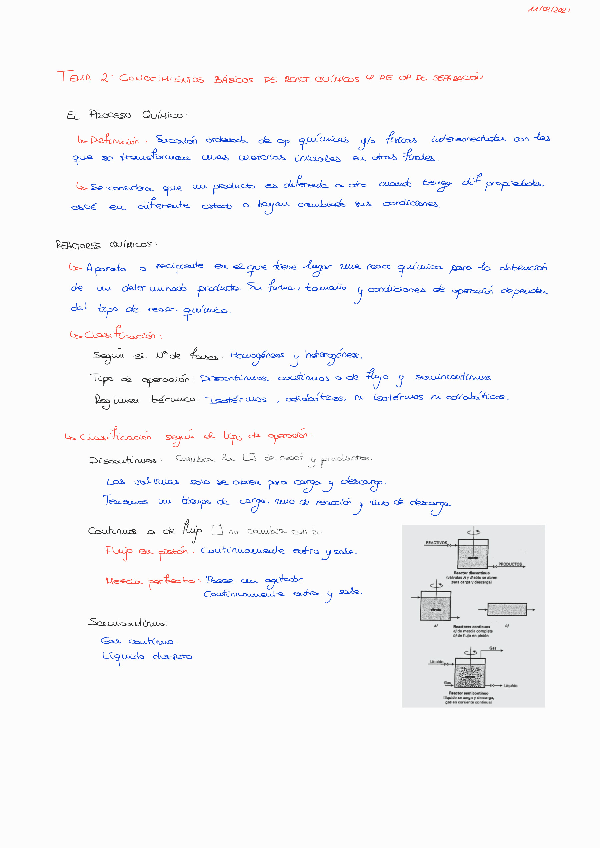 11/02/2021
TEMA 2: CONOCIMIENTOS BÁSICOS DE REACT QUÍMICOS Y DE OP DE SEPARACIÓN
EL PROCESO QUÍMICO:
Definición: Sucesión ordenada de op químicas y/o físicas interconectadas con las
que se transforman unas materias iniciales en otras finales
Se considera que un producto es diferente a otro cuando tenga dif propiedades,
esté en diferente estado o hayan cambiado sus condiciones
REACTORES QUÍMICOS:
Aparato o recipiente en el que tiene lugar una reacc química para la obtención
de un determinado producto. Su forma, tamaño y condiciones de operación dependen
del tipo de reacc. químico.
Clasificación:
Según el Nº de fases: Homogéneos y heterogéneos.
Tipo de operación Discontinuos, continuos o de flujo y semicontinuos
Régimen térmico: isotérmos, adiabáticos, ni isotérmos ni adiabáticos.
Clasificación según el tipo de operación
Discontinuos: Cambia la [] de react y productos.
Las válvulas solo se abren para carga y descarga.
Tenemos un tiempo de carga, uno de reacción y uno de descarga
Continuos o de flujo [] no cambia
Flujo en pistón: Continuamente entra y sale.
Mezcla perfecta: Posee un agitador
Continuamente entra y sale.
Semicontinuos
Gas continuo
Líquido discont
REACTIVOS
PRODUCTOS
Reactor discontinuo
(válvulas A y B sólo se abren
para carga y descarga)
c) d)
Reactores continuos
c) de mezcla completa
d) de flujo en pistón
Gas
Líquido
Gas
Líquido
Reactor semicontinuo
(líquido se carga y descarga,
gas en corriente continua)